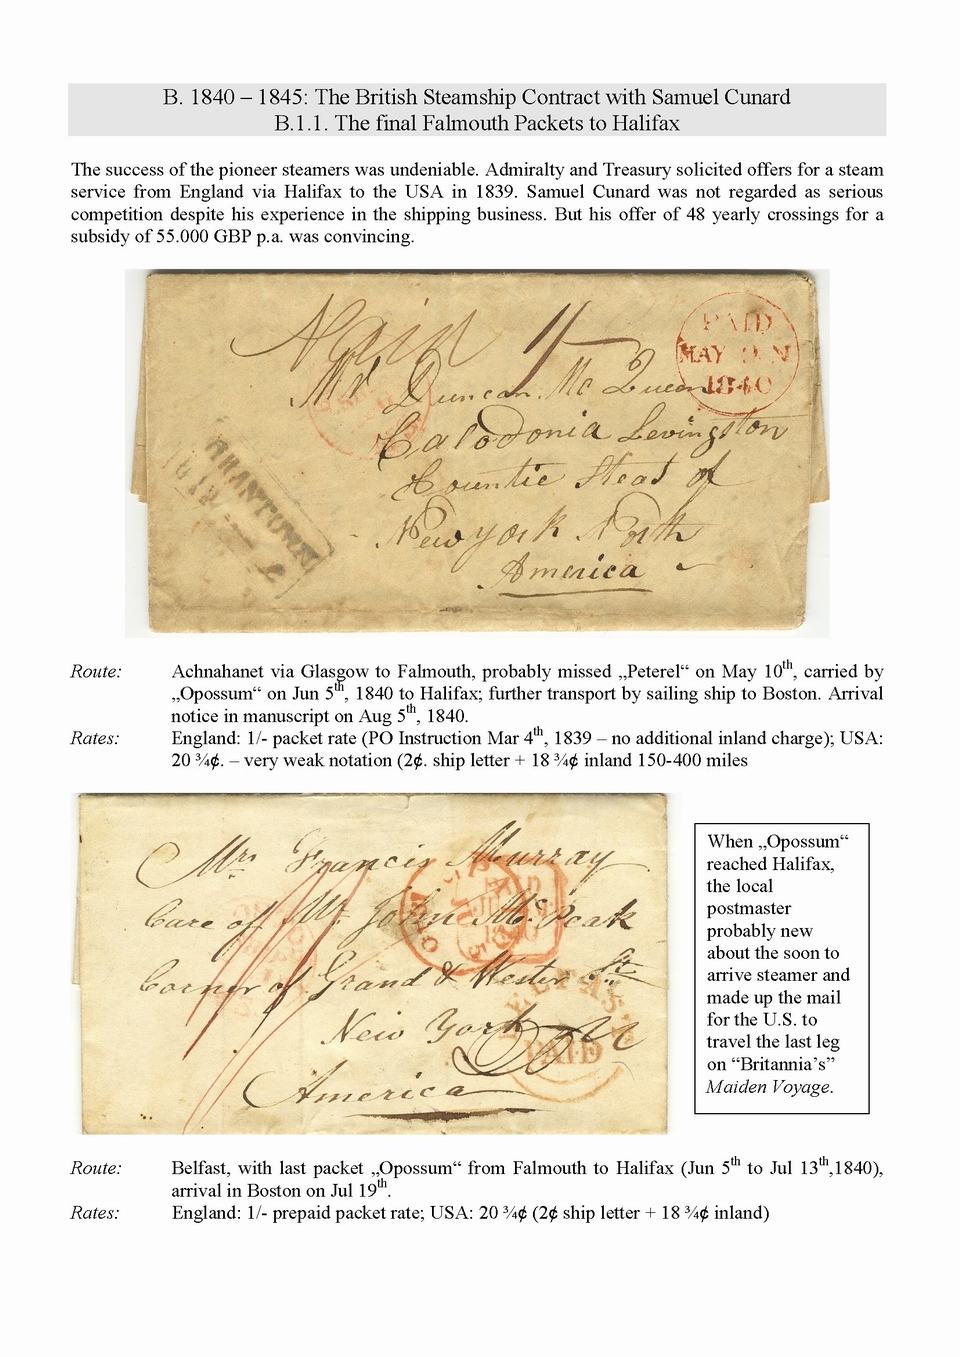 B. 1840 – 1845: The British Steamship Contract with Samuel Cunard
B.1.1. The final Falmouth Packets to Halifax
The success of the pioneer steamers was undeniable. Admiralty and Treasury solicited offers for a steam
service from England via Halifax to the USA in 1839. Samuel Cunard was not regarded as serious
competition despite his experience in the shipping business. But his offer of 48 yearly crossings for a
subsidy of 55.000 GBP p.a. was convincing.
1/-
PAID
MAY
1840
Mr Duncan Mc Queen
Calodonia Levingston
Countie Stead of
New york North
America
GRANTOWN
Route: Achnahanet via Glasgow to Falmouth, probably missed „Peterel“ on May 10th, carried by
„Opossum“ on Jun 5th, 1840 to Halifax; further transport by sailing ship to Boston. Arrival
notice in manuscript on Aug 5th, 1840.
Rates: England: 1/- packet rate (PO Instruction Mar 4th, 1839 – no additional inland charge); USA:
20 ¾¢. – very weak notation (2¢. ship letter + 18 ¾¢ inland 150-400 miles
Mrs Francis Murray
Care of Mr John McPeak
Corner of Grand & Wester St
New York
America
PAID
1840
BELFAST
PAID
When „Opossum“
reached Halifax,
the local
postmaster
probably new
about the soon to
arrive steamer and
made up the mail
for the U.S. to
travel the last leg
on “Britannia’s”
Maiden Voyage.
Route: Belfast, with last packet „Opossum“ from Falmouth to Halifax (Jun 5th to Jul 13th,1840),
arrival in Boston on Jul 19th.
Rates: England: 1/- prepaid packet rate; USA: 20 ¾¢ (2¢ ship letter + 18 ¾¢ inland)